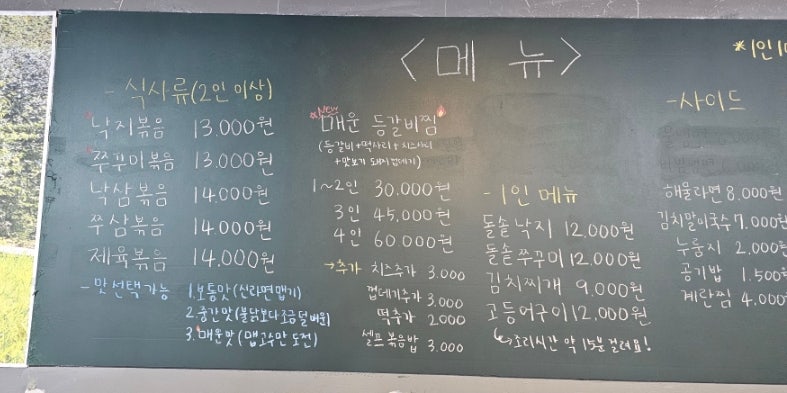 <메 뉴>
*1인
- 식사류(2인 이상)
낙지볶음 13.000원
쭈꾸미볶음 13.000원
낙삼볶음 14.000원
쭈삼볶음 14.000원
제육볶음 14.000원
- 맛선택가능 1.보통맛(신라면맵기)
2.중간맛(불닭보다조금덜매운)
3.매운맛(맵고수만 도전)
NEW
매운 등갈비찜
(등갈비+떡사리+치즈사리
+맛보기 돼지껍데기)
1~2인 30.000원
3인 45.000원
4인 60.000원
→추가 치즈추가 3.000
껍데기추가 3.000
떡추가 2000
셀프볶음밥 3.000
- 1인 메뉴
돌솥낙지 12,000원
돌솥쭈꾸미 12,000원
김치찌개 9,000원
고등어구이 12,000원
↳조리시간 약 15분 걸려요!
-사이드
해물라면 8.000원
김치말이국수 7.000원
누룽지 2.000원
공기밥 1.500
계란찜 4.000